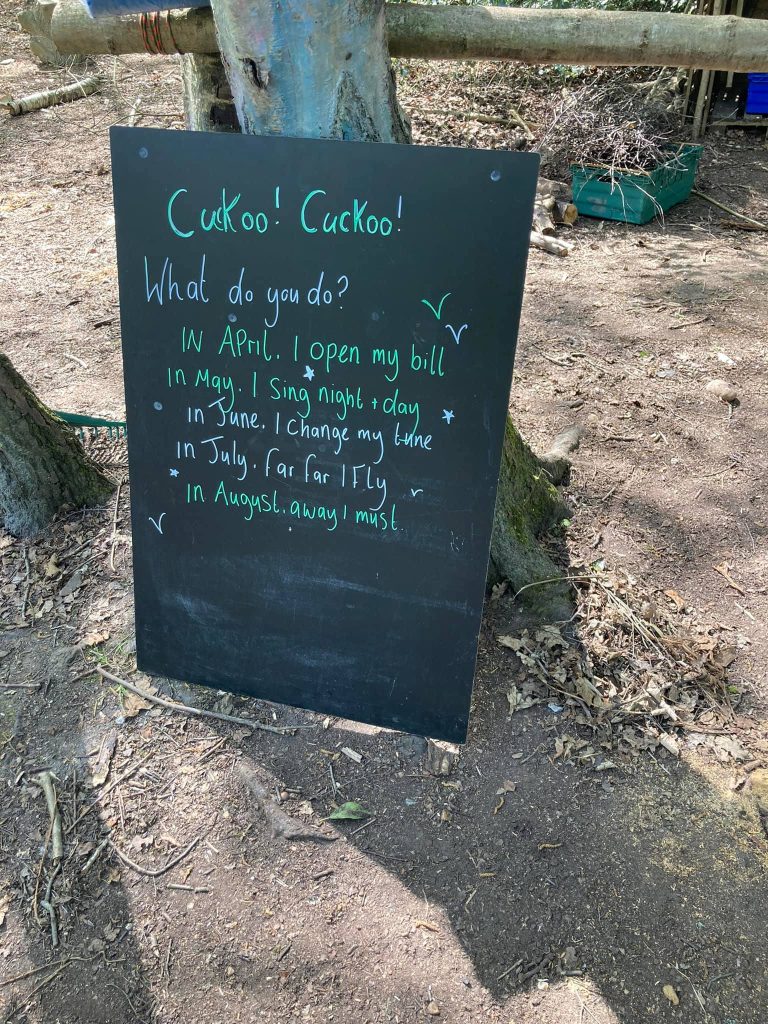 Cuckoo! Cuckoo!
What do you do?
IN April. I open my bill
in May. I sing night + day
in June. I change my tune
in July. far far I Fly
in August. away I must.